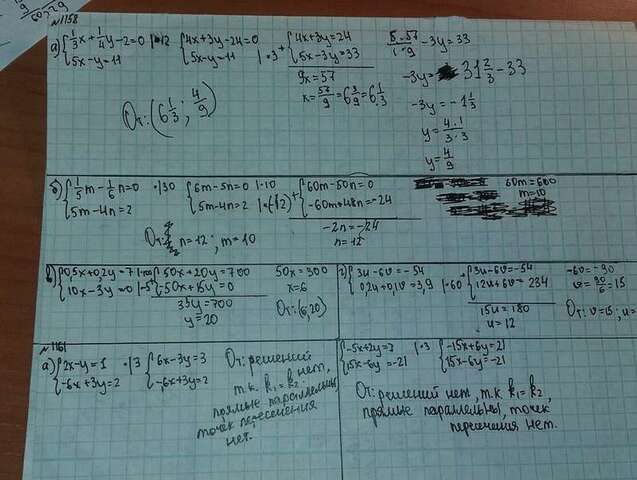 №1158
а) { 1/3x + 1/4y - 2 = 0 | · 12 { 4x + 3y - 24 = 0 + { 4x + 3y = 24
5x - y = 11 5x - y = 11 | · 3 5x - 3y = 33
9x = 57
x = 57/9 = 6 3/9 = 6 1/3
5·57/9 - 3y = 33
-3y = 31 2/3 - 33
-3y = -1 1/3
y = 4·1/3·3
y = 4/9
От: (6 1/3; 4/9)
б) { 1/5m - 1/6n = 0 · | 30 { 6m - 5n = 0 | · 10 + { 60m - 50n = 0
5m - 4n = 2 5m - 4n = 2 | · (-12) -60m + 48n = -24
-2n = -24
n = 12
60m = 600
m = 10
От: n = 12; m = 10
в) { 0,5x + 0,2y = 7 | · 100 { 50x + 20y = 700
10x - 3y = 0 | · -5 -50x + 15y = 0
35y = 700
y = 20
50x = 300
x = 6
От: (6; 20)
г) { 3u - 6v = -54 + { 3u - 6v = -54
0,2u + 0,1v = 3,9 | · 60 12u + 6v = 234
15u = 180
u = 12
-6v = -90
v = 90/6 = 15
От: v = 15; u =
№1161
а) { 2x - y = 1 · | 3 { 6x - 3y = 3
-6x + 3y = 2 -6x + 3y = 2
От: решений
нет,
т.к. k₁ = k₂
прямые параллельны
точек пересечения
нет.
{ -5x + 2y = 7 | · 3 { -15x + 6y = 21
15x - 6y = -21 15x - 6y = -21
От: решений нет, т.к. k₁ = k₂,
прямые параллельны, точек
пересечения нет.